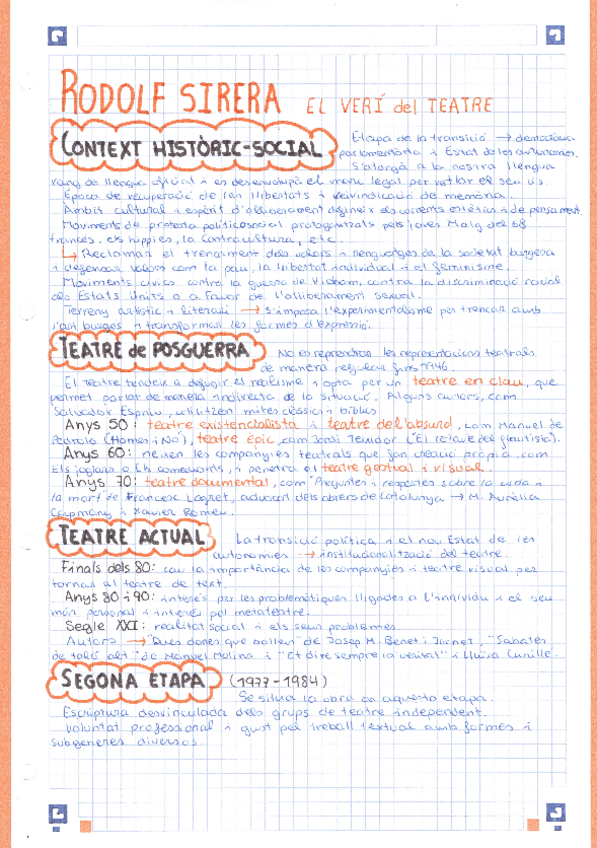 RODOLF SIRERA EL VERÍ del TEATRE
CONTEXT HISTÒRIC-SOCIAL
Etapa de la transició → democràcia
parlamentària i Estat de les autonomies.
S'atorgà a la nostra llengua
rang de llengua oficial i es desenvolupà el marc legal per vetlar el seu ús.
Època de recuperació de les llibertats i reivindicació de memòria.
Àmbit cultural i esperit d'alliberament defineix els corrents estètics i de pensament.
Moviments de protesta politicosocial protagonitzats pels joves Maig del 68
francès, els hippies, la contracultura, etc.
↳ Reclamar el trencament dels valors i llenguatges de la societat burgesa
i defensar valors com la pau, la llibertat individual i el feminisme.
Moviments cívics contra la guerra de Vietnam, contra la discriminació racial
als Estats Units o a favor de l'alliberament sexual.
Terreny artístic i literari → s'imposa l'experimentalisme per trencar amb
l'art burgès i transformar les formes d'expressió.
TEATRE de POSGUERRA
No es reprendran les representacions teatrals
de manera regular fins 1946.
El teatre tendeix a defugir el realisme i opta per un teatre en clau, que
permet parlar de manera indirecta de la situació. Alguns autors, com
Salvador Espriu, utilitzen mites clàssics i bíblics
Anys 50: teatre existencialista i teatre de l'absurd, com Manuel de
Pedrolo (Homes i No), teatre èpic, com Jordi Teixidor ("El retaule del flautista").
Anys 60: neixen les companyies teatrals que fan creació pròpia com
Els joglars o Els comediants, i penetra el teatre gestual i visual.
Anys 70: teatre documental, com "Preguntes i respostes sobre la vida i
la mort de Francesc Layret, advocat dels obrers de Catalunya → M. Aurèlia
Capmany i Xavier Romeu.
TEATRE ACTUAL
La transició política i el nou Estat de les
autonomies → institucionalització del teatre.
Finals dels 80: cau la importància de les companyies i teatre visual per
tornar al teatre de text.
Anys 80 i 90: interès per les problemàtiques lligades a l'individu i el seu
món personal i interès pel metateatre.
Segle XXI: realitat social i els seus problemes.
Autors → "Dues dones que ballen" de Josep M. Benet i Jornet, "Sabates
de taló alt" de Manuel Molins i "Et diré sempre la veritat" i Lluïsa Cunillé.
SEGONA ETAPA (1977-1984)
Se situa la obra en aquesta etapa.
Escriptura desvinculada dels grups de teatre independent.
Voluntat professional i gust pel treball textual amb formes i
subgèneres diversos.